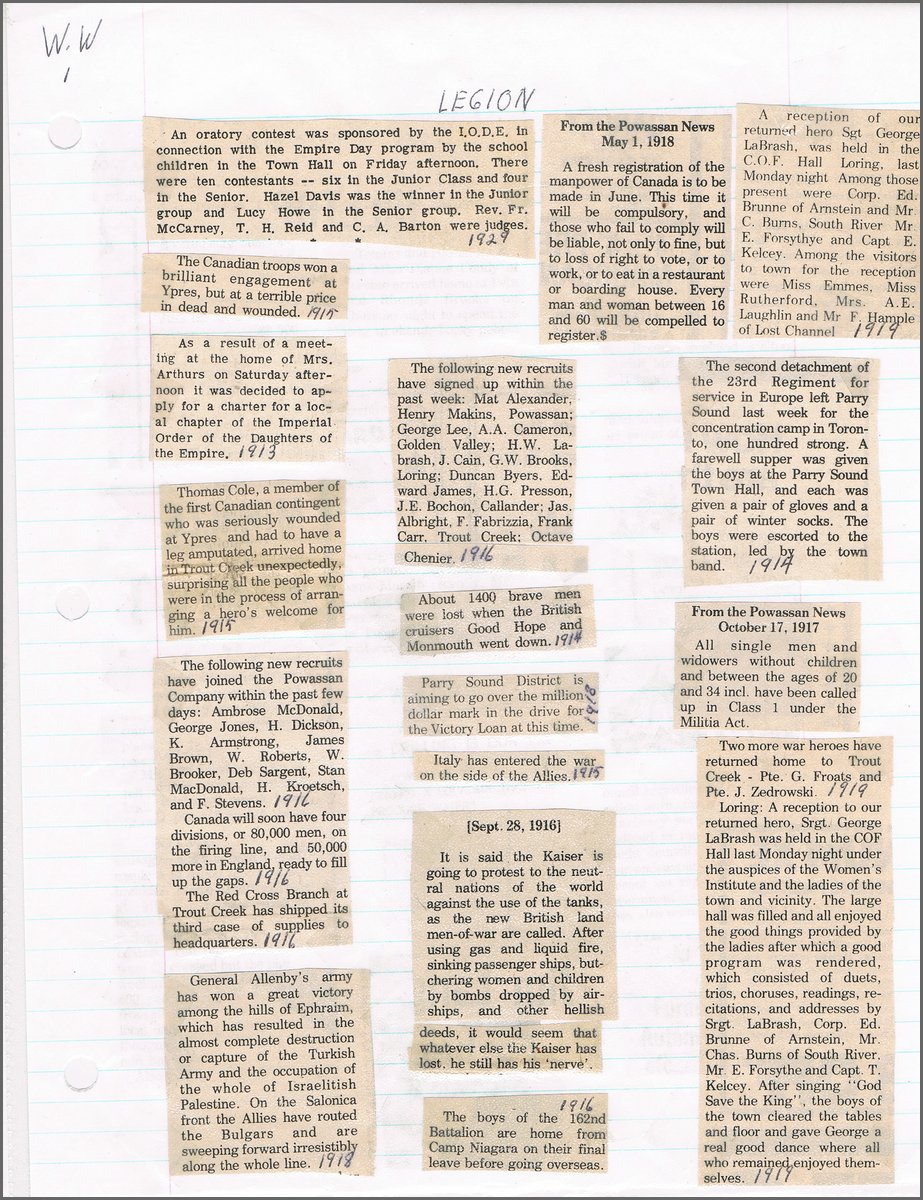 W.W
1
LEGION
An oratory contest was sponsored by the I.O.D.E. in
connection with the Empire Day program by the school
children in the Town Hall on Friday afternoon. There
were ten contestants -- six in the Junior Class and four
in the Senior. Hazel Davis was the winner in the Junior
group and Lucy Howe in the Senior group. Rev. Fr.
McCarney, T. H. Reid and C. A. Barton were judges.
* * * 1929
The Canadian troops won a
brilliant engagement at
Ypres, but at a terrible price
in dead and wounded. 1915
As a result of a meet-
ing at the home of Mrs.
Arthurs on Saturday after-
noon it was decided to ap-
ply for a charter for a loc-
al chapter of the Imperial
Order of the Daughters of
the Empire. 1913
Thomas Cole, a member of
the first Canadian contingent
who was seriously wounded
at Ypres and had to have a
leg amputated, arrived home
in Trout Creek unexpectedly,
surprising all the people who
were in the process of arran-
ging a hero's welcome for
him. 1915
The following new recruits
have joined the Powassan
Company within the past few
days: Ambrose McDonald,
George Jones, H. Dickson,
K. Armstrong, James
Brown, W. Roberts, W.
Brooker, Deb Sargent, Stan
MacDonald, H. Kroetsch,
and F. Stevens. 1916
Canada will soon have four
divisions, or 80,000 men, on
the firing line, and 50,000
more in England, ready to fill
up the gaps. 1916
The Red Cross Branch at
Trout Creek has shipped its
third case of supplies to
headquarters. 1916
General Allenby's army
has won a great victory
among the hills of Ephraim,
which has resulted in the
almost complete destruction
or capture of the Turkish
Army and the occupation of
the whole of Israelitish
Palestine. On the Salonica
front the Allies have routed
the Bulgars and are
sweeping forward irresistibly
along the whole line. 1918
From the Powassan News
May 1, 1918
A fresh registration of the
manpower of Canada is to be
made in June. This time it
will be compulsory, and
those who fail to comply will
be liable, not only to fine, but
to loss of right to vote, or to
work, or to eat in a restaurant
or boarding house. Every
man and woman between 16
and 60 will be compelled to
register.$
The following new recruits
have signed up within the
past week: Mat Alexander,
Henry Makins, Powassan;
George Lee, A.A. Cameron,
Golden Valley; H.W. La-
brash, J. Cain, G.W. Brooks,
Loring; Duncan Byers, Ed-
ward James, H.G. Presson,
J.E. Bochon, Callander; Jas.
Albright, F. Fabrizzia, Frank
Carr. Trout Creek; Octave
Chenier. 1916
About 1400 brave men
were lost when the British
cruisers Good Hope and
Monmouth went down. 1914
Parry Sound District is
aiming to go over the million
dollar mark in the drive for
the Victory Loan at this time. 1918
Italy has entered the war
on the side of the Allies. 1915
[Sept. 28, 1916]
It is said the Kaiser is
going to protest to the neut-
ral nations of the world
against the use of the tanks,
as the new British land
men-of-war are called. After
using gas and liquid fire,
sinking passenger ships, but-
chering women and children
by bombs dropped by air-
ships, and other hellish
deeds, it would seem that
whatever else the Kaiser has
lost, he still has his 'nerve'.
1916
The boys of the 162nd
Battalion are home from
Camp Niagara on their final
leave before going overseas.
A reception of our
returned hero Sgt George
LaBrash, was held in the
C.O.F. Hall Loring, last
Monday night Among those
present were Corp. Ed.
Brunne of Arnstein and Mr.
C. Burns, South River Mr.
E. Forsythye and Capt E.
Kelcey. Among the visitors
to town for the reception
were Miss Emmes, Miss
Rutherford, Mrs. A.E.
Laughlin and Mr F. Hample
of Lost Channel 1919
The second detachment of
the 23rd Regiment for
service in Europe left Parry
Sound last week for the
concentration camp in Toron-
to, one hundred strong. A
farewell supper was given
the boys at the Parry Sound
Town Hall, and each was
given a pair of gloves and a
pair of winter socks. The
boys were escorted to the
station, led by the town
band. 1914
From the Powassan News
October 17, 1917
All single men and
widowers without children
and between the ages of 20
and 34 incl. have been called
up in Class 1 under the
Militia Act.
Two more war heroes have
returned home to Trout
Creek - Pte. G. Froats and
Pte. J. Zedrowski. 1919
Loring: A reception to our
returned hero, Srgt. George
LaBrash was held in the COF
Hall last Monday night under
the auspices of the Women's
Institute and the ladies of the
town and vicinity. The large
hall was filled and all enjoyed
the good things provided by
the ladies after which a good
program was rendered,
which consisted of duets,
trios, choruses, readings, re-
citations, and addresses by
Srgt. LaBrash, Corp. Ed.
Brunne of Arnstein, Mr.
Chas. Burns of South River.
Mr. E. Forsythe and Capt. T.
Kelcey. After singing "God
Save the King", the boys of
the town cleared the tables
and floor and gave George a
real good dance where all
who remained enjoyed them-
selves. 1919